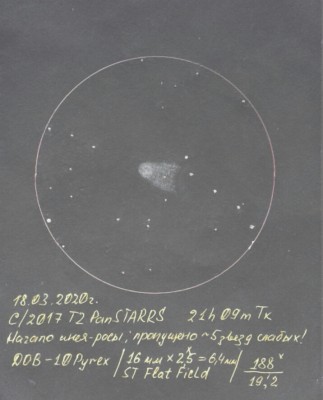 18.03.2020г.
C/2017 T2 PanSTARRS 21h 09m Tк
Начало инея-росы; пропущено ~5 звёзд слабых!
DOB-10 Pyrex / 16мм × 2,5 = 6,4мм / 188ˣ
ST Flat Field 19,'2